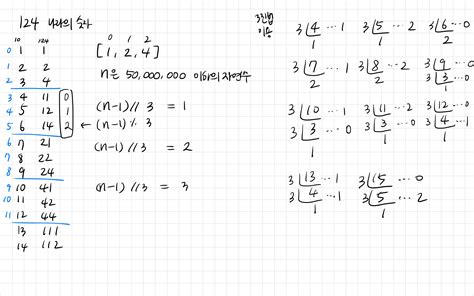 124 나라의 숫자
10 124
0 1 1
1 2 2
2 3 4
3 4 11 0
4 5 12 1
5 6 14 2
6 7 21
7 8 22
8 9 24
9 10 41
10 11 42
11 12 44
13 111
14 112
0 1 2
[1, 2, 4]
n은 50,000,000 이하의 자연수
(n-1)//3 = 1
← (n-1)% 3
(n-1)//3 = 2
(n-1)//3 = 3
3진법
3 4 ... 1
1
3 5 ... 2
1
3 6 ... 0
2
3 7 ... 1
2
3 8 ... 2
2
3 9 ... 0
3 3 ... 0
1
3 10 ... 1
3 3 ... 0
1
3 11 ... 2
3 3 ... 0
1
3 12 ... 0
3 4 ... 1
1
3 13 ... 1
3 4 ... 1
1
3 15 ... 0
3 5 ... 2
1